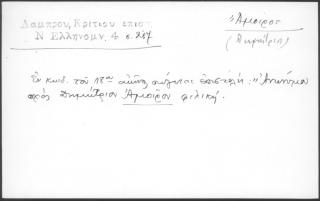 Λαμπρου, Κριτιου επισ.
Ν. Ελληνομν. 4 σ. 287
Ἀμοιρος
(Δημήτριος)
Ἐν κωδ. τοῦ 18ου αἰῶνος σώζεται ἐπιστολή: "Ἀνωνύμου
πρὸς Δημήτριον Ἀμοιρον φιλική.